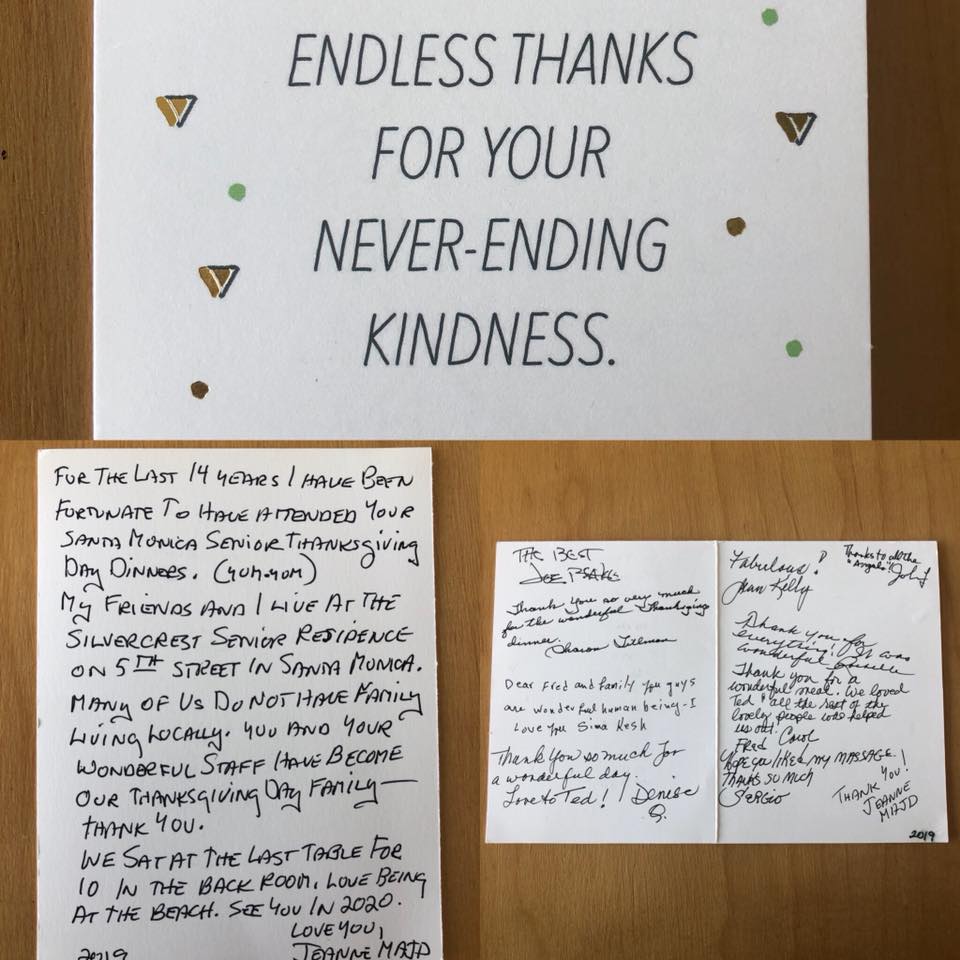 ENDLESS THANKS
FOR YOUR
NEVER-ENDING
KINDNESS.
FOR THE LAST 14 YEARS I HAVE BEEN
FORTUNATE TO HAVE ATTENDED YOUR
SANTA MONICA SENIOR THANKSGIVING
DAY DINNERS. (YUM-YUM)
MY FRIENDS AND I LIVE AT THE
SILVERCREST SENIOR RESIDENCE
ON 5TH STREET IN SANTA MONICA.
MANY OF US DO NOT HAVE FAMILY
LIVING LOCALLY. YOU AND YOUR
WONDERFUL STAFF HAVE BECOME
OUR THANKSGIVING DAY FAMILY—
THANK YOU.
WE SAT AT THE LAST TABLE FOR
10 IN THE BACK ROOM. LOVE BEING
AT THE BEACH. SEE YOU IN 2020.
LOVE YOU,
JEANNE MAJD
2019
THE BEST
JOE
Thank you so very much
for the wonderful Thanksgiving
dinner.
Sharon
Dear Fred and family you guys
are wonderful human being - I
Love You Sima Kesh
Thank You so much for
a wonderful day.
Love to Ted! Denise
Fabulous!
Jean Kelly
Thanks to all the
"Angels"!
Thank you for
everything! It was
wonderful
Thank you for a
wonderful meal. We loved
Ted & all the rest of the
lovely people who helped
us out.
Fred Carol
Hope you liked my MASSAGE!
THANKS SO MUCH
SERGIO
THANK YOU!
JEANNE
MAJD
2019